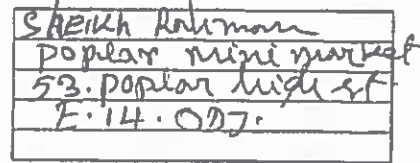 Sheikh Rahman
poplar mini market
53. poplar high st.
E. 14. ODJ.